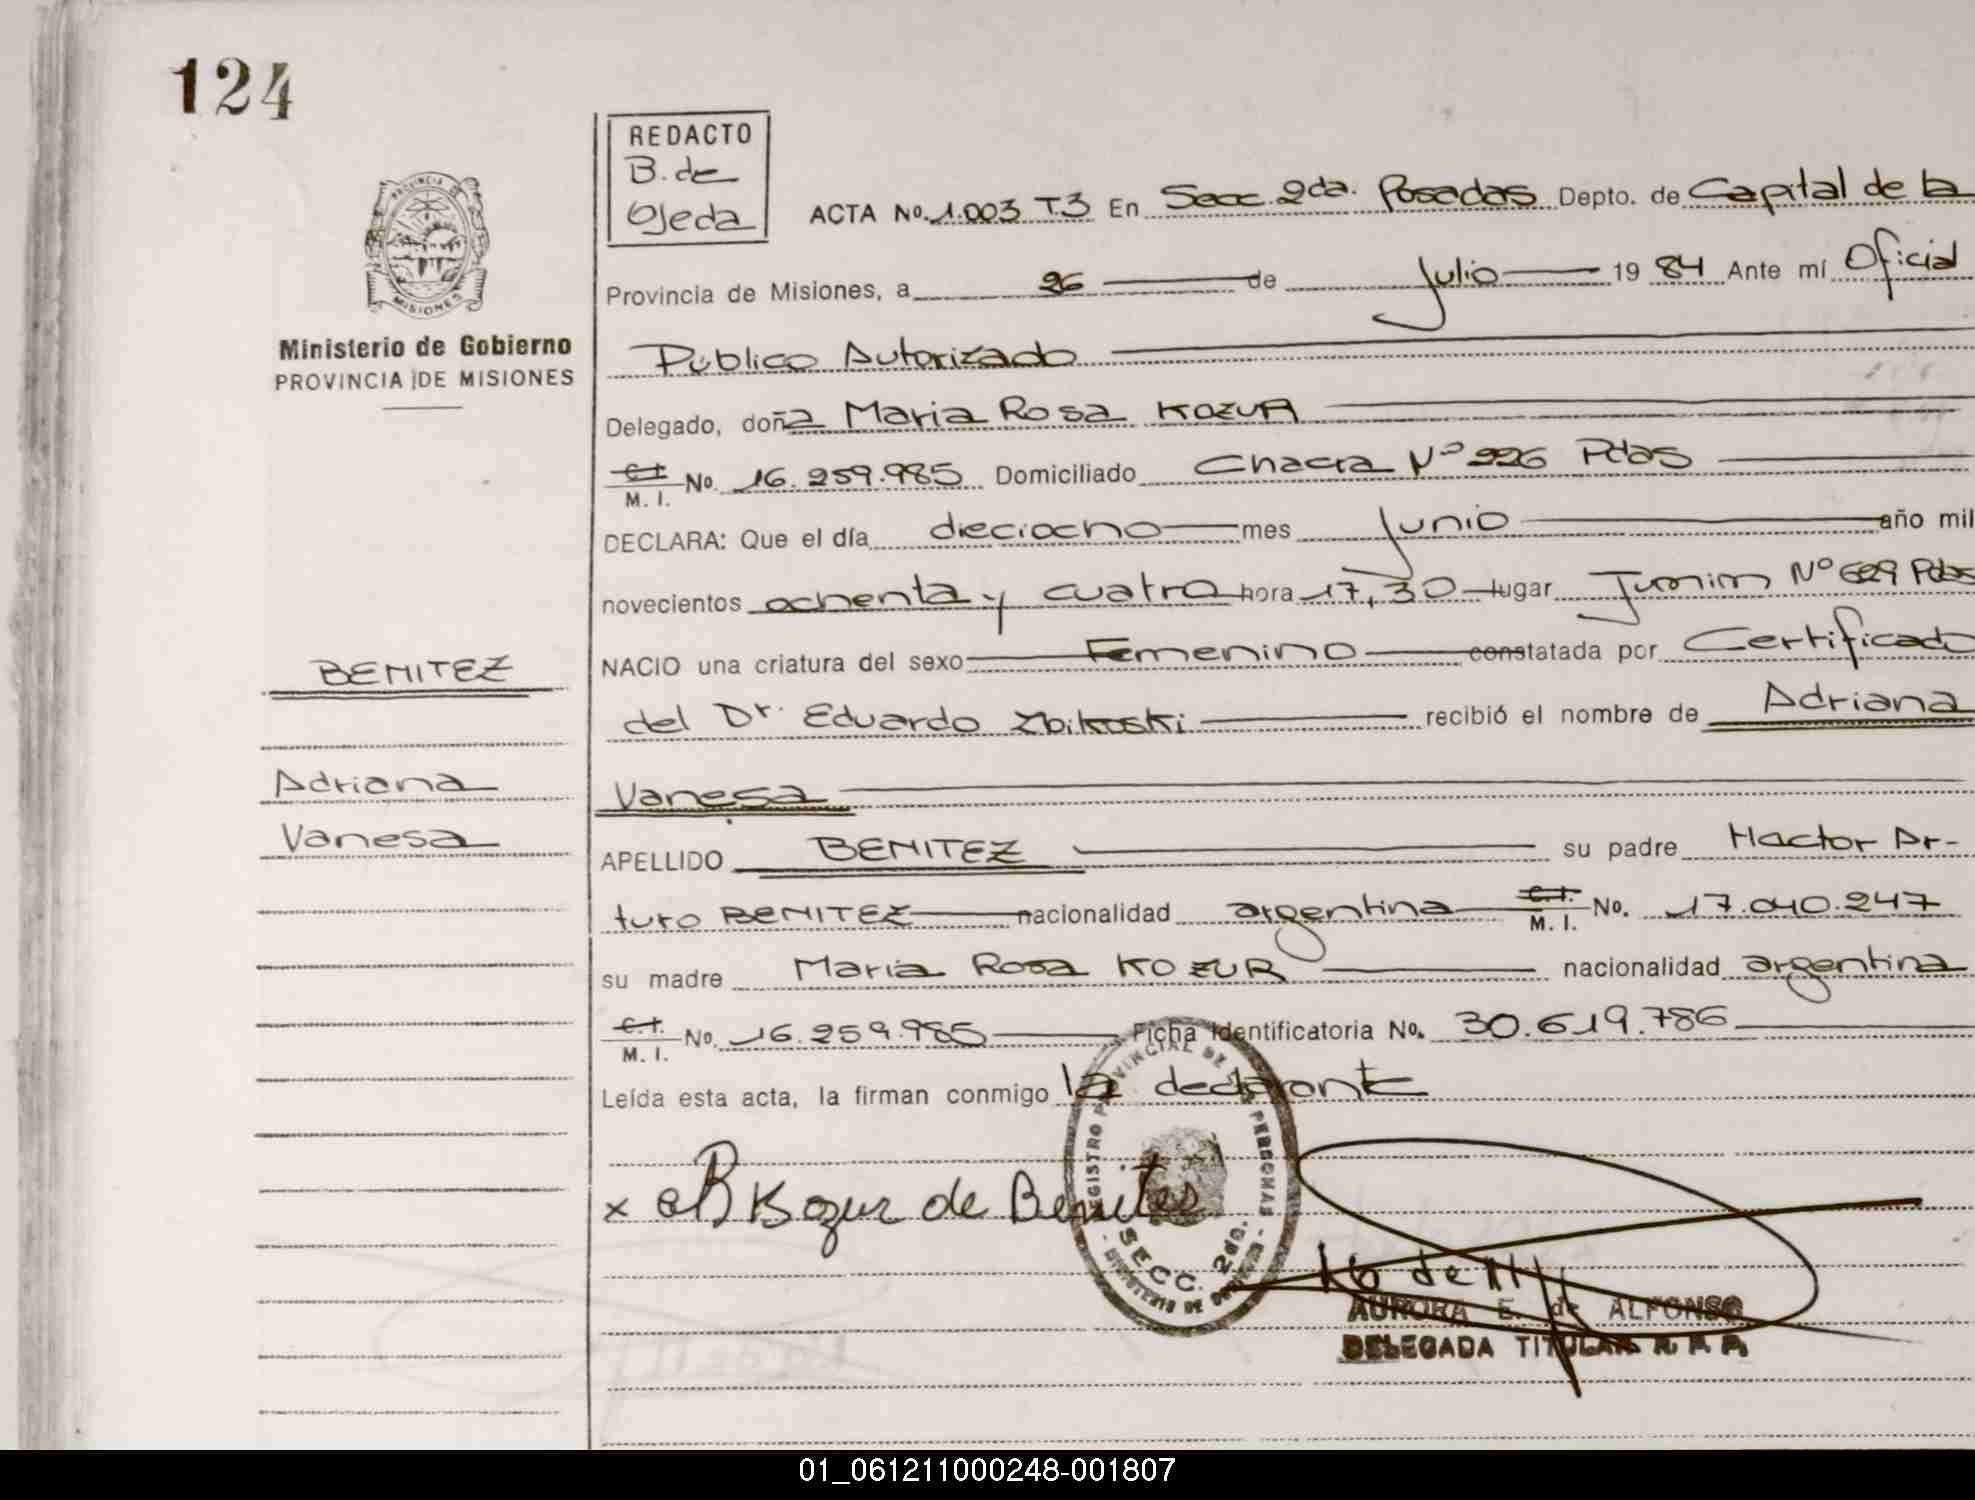 124
REDACTO
B. de
Ojeda
PROVINCIA DE
MISIONES
Ministerio de Gobierno
PROVINCIA DE MISIONES
ACTA No. 1.003 T3 En Secc. 2da. Posadas Depto. de Capital de la
Provincia de Misiones, a 26 de Julio 19 84 Ante mí Oficial
Público Autorizado
Delegado, doña Maria Rosa KOZUR
C.I. M. I. No. 16.259.985 Domiciliado Chacra Nº 226 Pdas
DECLARA: Que el día dieciocho mes Junio año mil
novecientos ochenta y cuatro hora 17,30 lugar Junin Nº 629 Pdas
NACIO una criatura del sexo Femenino constatada por Certificado
del Dr. Eduardo Zbikoski recibió el nombre de Adriana
Vanesa
BENITEZ
Adriana
Vanesa
APELLIDO BENITEZ su padre Hactor Ar-
turo BENITEZ nacionalidad argentina C.I. M. I. No. 17.040.247
su madre Maria Rosa KOZUR nacionalidad argentina
C.I. M. I. No. 16.259.985 Ficha Identificatoria No. 30.619.786
Leída esta acta, la firman conmigo la declarante
REGISTRO PROVINCIAL DE LAS PERSONAS
SECC. 2da.
MINISTERIO DE GOBIERNO
x Kozur de Benites
AURORA E. de ALFONSO
DELEGADA TITULAR R. P. P.
01_061211000248-001807